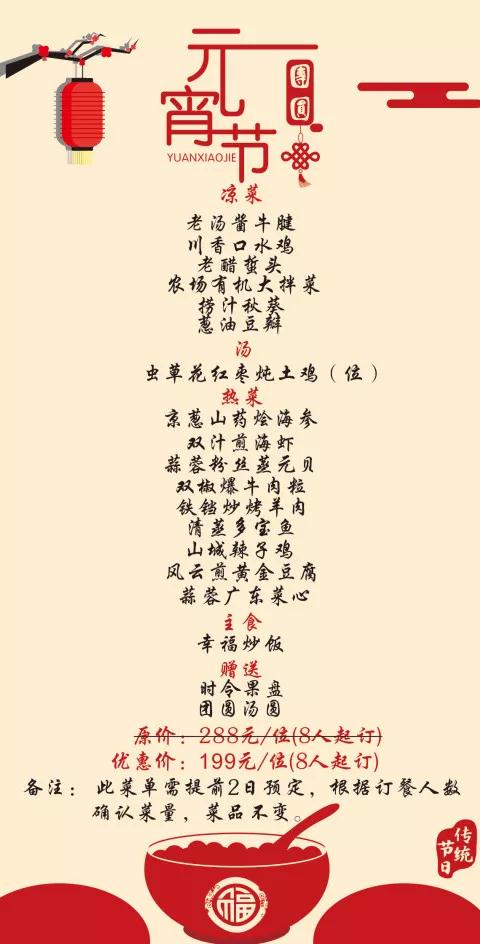 元宵节
团圆
YUANXIAOJIE
凉菜
老汤酱牛腱
川香口水鸡
老醋蜇头
农场有机大拌菜
捞汁秋葵
葱油豆瓣
汤
虫草花红枣炖土鸡（位）
热菜
京葱山药烩海参
双汁煎海虾
蒜蓉粉丝蒸元贝
双椒爆牛肉粒
铁铛炒烤羊肉
清蒸多宝鱼
山城辣子鸡
风云煎黄金豆腐
蒜蓉广东菜心
主食
幸福炒饭
赠送
时令果盘
团圆汤圆
原价：288元/位(8人起订)
优惠价：199元/位(8人起订)
备注： 此菜单需提前2日预定，根据订餐人数
确认菜量，菜品不变。
传统
节日
福